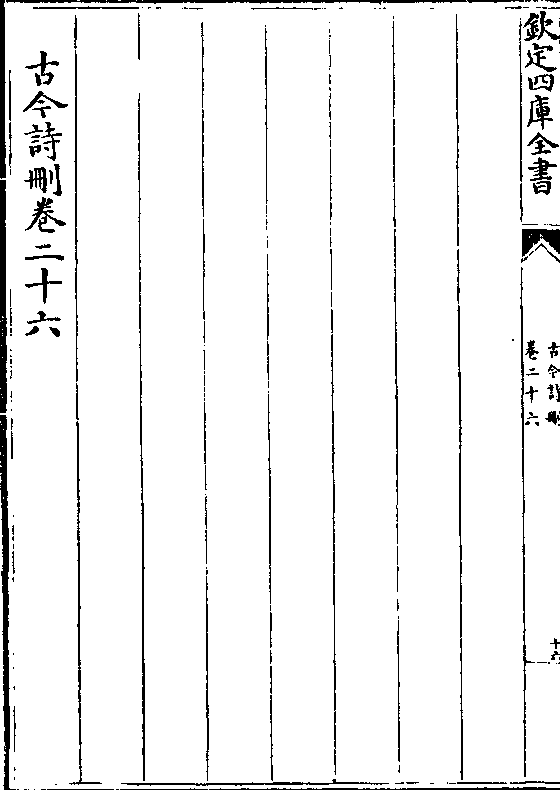 欽定四庫全書
古今詩刪
卷二十六
十六
古今詩刪卷二十六